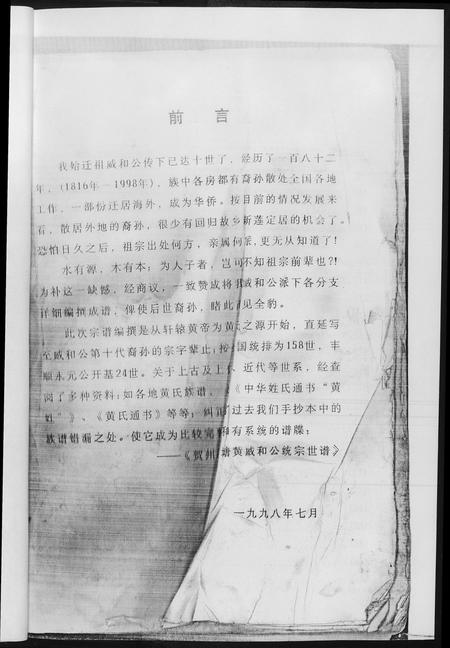 前 言
我始迁祖威和公传下已达十世了，经历了一百八十二
年，（1816年—1998年），族中各房都有裔孙散处全国各地
工作，一部份迁居海外，成为华侨。按目前的情况发展来
看，散居外地的裔孙，很少有回归故乡新莲定居的机会了。
恐怕日久之后，祖宗出处何方，亲属何派，更无从知道了！
水有源，木有本；为人子者，岂可不知祖宗前辈也？！
为补这一缺憾，经商议，一致赞成将我威和公派下各分支
详细编撰成谱，俾使后世裔孙，睹此见全豹。
此次宗谱编撰是从轩辕黄帝为黄氏之源开始，直延写
至威和公第十代裔孙的宗字辈止，按国统排为158世，丰
顺永元公开基24世。关于上古及上代、近代等世系，经查
阅了多种资料：如各地黄氏族谱，《中华姓氏通书“黄
姓”》、《黄氏通书》等等；纠正过去我们手抄本中的
族谱错漏之处。使它成为比较完和有系统的谱牒：
——《贺州 莲黄威和公统宗世谱》
一九九八年七月